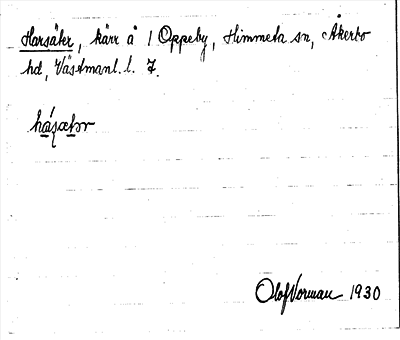 Harsäter, kärr å 1 Oppeby, Himmeta sn, Åkerbo
hd, Västmanl. l. 7.
Olof Vorman 1930